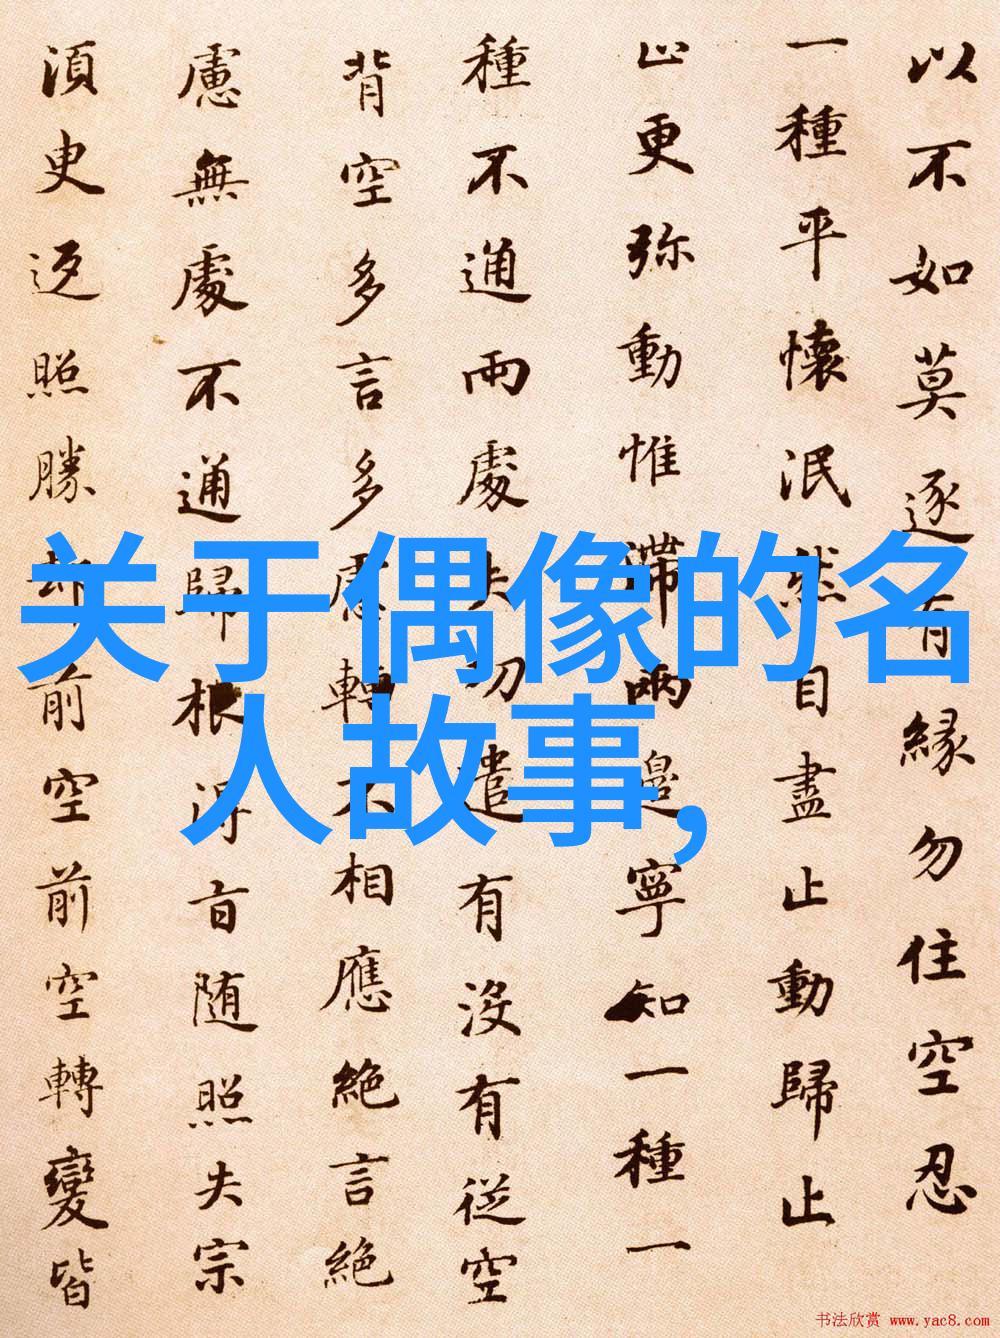 关于偶像的名
人故事,
以不如莫逐有緣勿住空忍
一種平懷泯然自盡止動歸止
止更弥動惟滯兩邊寧知一種一
種不通兩處失功遣有沒有從空
背空多言多慮轉不相應絕言絕
慮無處不通歸根得旨随照失宗
須臾返照勝却前空前空轉變皆
书法欣赏 www.yac8.com